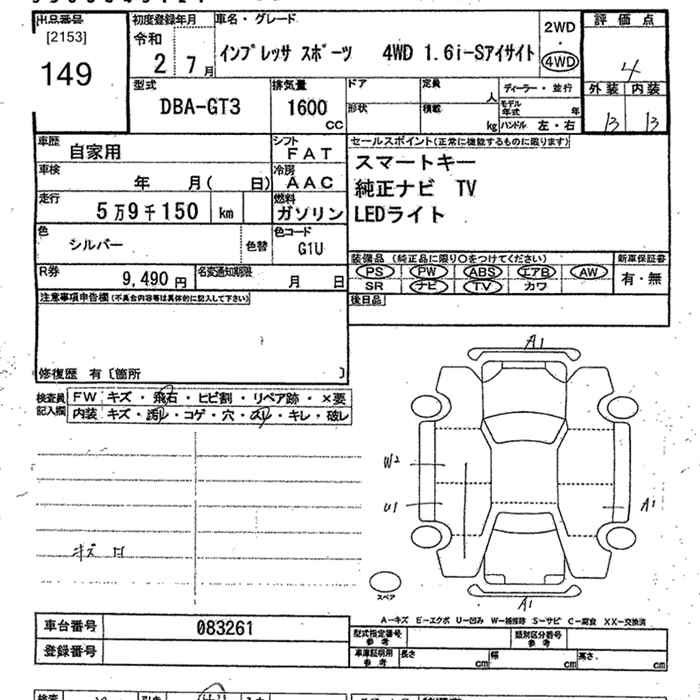 出品番号
[2153]
149
初度登録年月
令和
2 7月
車名・グレード
インプレッサ スポーツ 4WD 1.6i-Sアイサイト
2WD
4WD
評価点
4
外装 内装
B B
型式
DBA-GT3
排気量
1600
CC
ドア
形状
定員
人
積載
kg
ディーラー・並行
モデル年式 年
ハンドル 左・右
車歴
自家用
シフト
FAT
車検
年 月( 日)
冷房
AAC
走行
5万9千150 km
燃料
ガソリン
色
シルバー
色替
色コード
G1U
R券
9,490円
名変通知期限
月 日
セールスポイント(正常に機能するものに限ります)
スマートキー
純正ナビ TV
LEDライト
装備品(純正品に限り○をつけてください)
PS PW ABS エアB AW
SR ナビ TV カワ
新車保証書
有・無
後日品
注意事項申告欄(不具合内容等は具体的に記入して下さい)
修復歴 有〔箇所 〕
検査員
記入欄
FW キズ・飛石・ヒビ割・リペア跡・×要
内装 キズ・汚レ・コゲ・穴・スレ・キレ・破レ
A1
W2
U1
A1
A1
スペア
A-キズ E-エクボ U-凹み W-補修跡 S-サビ C-腐食 XX-交換済
車台番号
083261
登録番号
型式指定番号
参考
類別区分番号
参考
車庫証明用
参考
長さ cm
幅 cm
高さ cm